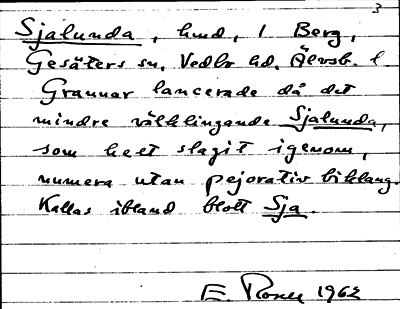 3
Sjalunda, hmd, i Berg,
Gesäters sn, Vedbo hd. Älvsb. l
Grannar lancerade då det
mindre välklingande Sjalunda,
som helt slagit igenom,
numera utan pejorativ biklang.
Kallas ibland blott Sja.
E. 1962